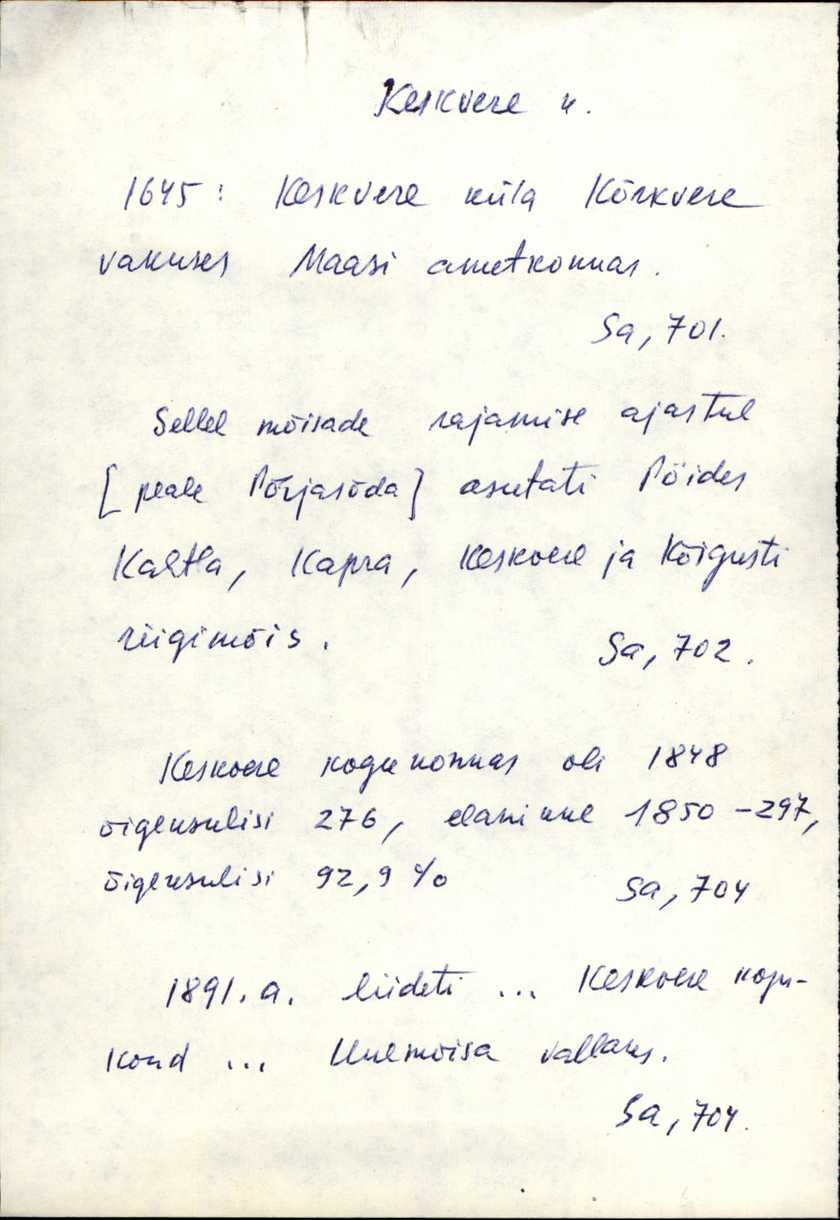 Keskvere k.
1645: Keskvere küla Kõrkvere
vakuses Maasi ametkonnas.
Sa, 701.
Sellel mõisade rajamise ajastul
[peale Põhjasõda] asutati Pöides
Kahtla, Kapra, Keskvere ja Kõigusti
riigimõis.
Sa, 702.
Keskvere kogukonnas oli 1848
õigeusulisi 276, elanikke 1850 - 297,
õigeusulisi 92,9 %
Sa, 704
1891. a. liideti ... Keskvere kogu-
kond ... Uuemõisa vallaks.
Sa, 704.